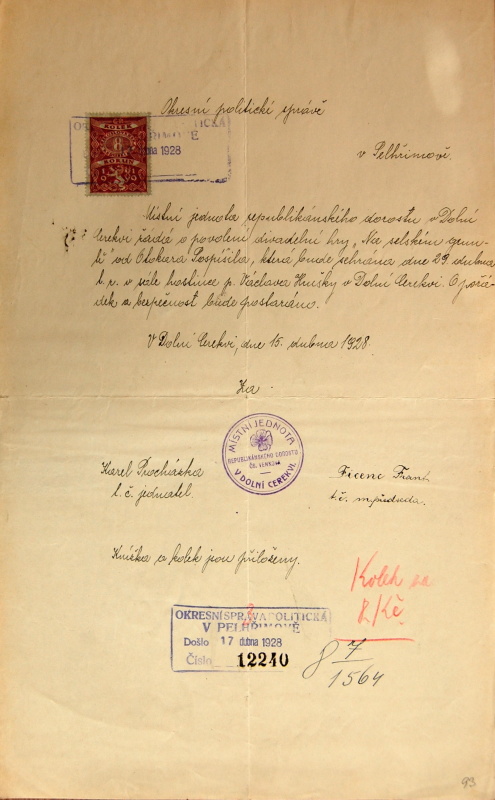 Okresní politické správě
v Pelhřimově.
ČR
KOLEK
8
KORUN
OKRESNÍ SPRÁVA POLITICKÁ
V PELHŘIMOVĚ
dubna 1928
Místní jednota republikánského dorostu v Dolní
Cerekvi žádá o povolení divadelní hry „Na selském grun-
tě" od Otokara Pospíšila, která bude sehrána dne 29. dubna
t. r. v sále hostince p. Václava Krušky v Dolní Cerekvi. O pořá-
dek a bezpečnost bude postaráno.
V Dolní Cerekvi, dne 15. dubna 1928.
Za
MÍSTNÍ JEDNOTA
REPUBLIKÁNSKÉHO DOROSTU
ČS. VENKOVA
V DOLNÍ CEREKVI.
Karel Procházka
t. č. jednatel.
Ficenc Frant.
t. č. m. předseda.
Knížka a kolek jsou přiloženy.
Kolek za
2 Kč
OKRESNÍ SPRÁVA POLITICKÁ
V PELHŘIMOVĚ
Došlo 17 dubna 1928
Číslo 12240
7
1564
93